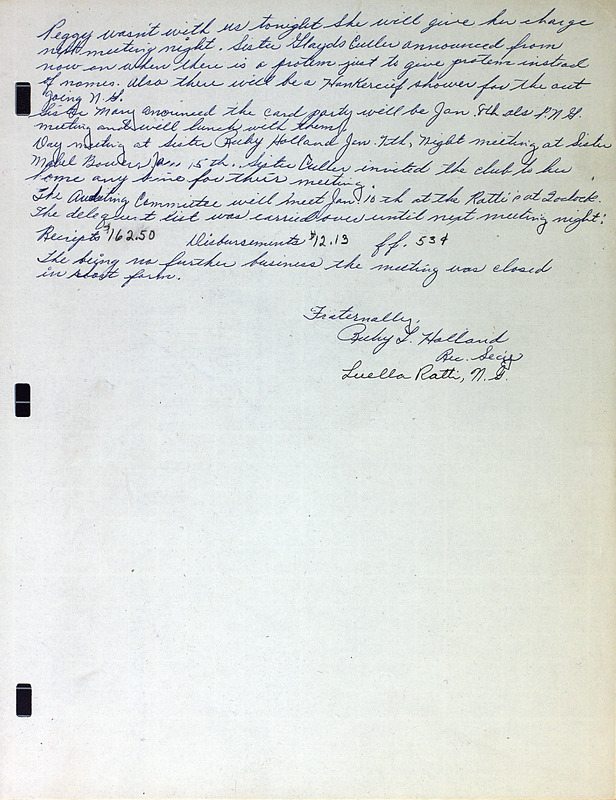 Peggy wasn't with us tonight she will give her charge
next meeting night. Sister Glayds Culler announced from
now on when there is a protem just to give protem instead
of names. Also there will be a Hankercief shower for the out
Going N.G.
Sister Mary anounced the card party will be Jan. 8th als P.N.G.
meeting and will lunch with them,
Day meeting at Sister Ruby Holland Jan. 7th, Night meeting at Sister
Mabel Bowers, Jan. 15th. Sister Culler invited the club to her
home any time for their meeting.
The Auditing Committee will meet Jan. 10th at the Ratti's at 2oclock.
The deloquent list was carried over until next meeting night.
Receipts $162.50 Disbursements $12.13 f.f. 53¢
The being no further business the meeting was closed
in form.
Fraternally,
Ruby L. Holland
Rec. Secy
Luella Ratti, N.G.